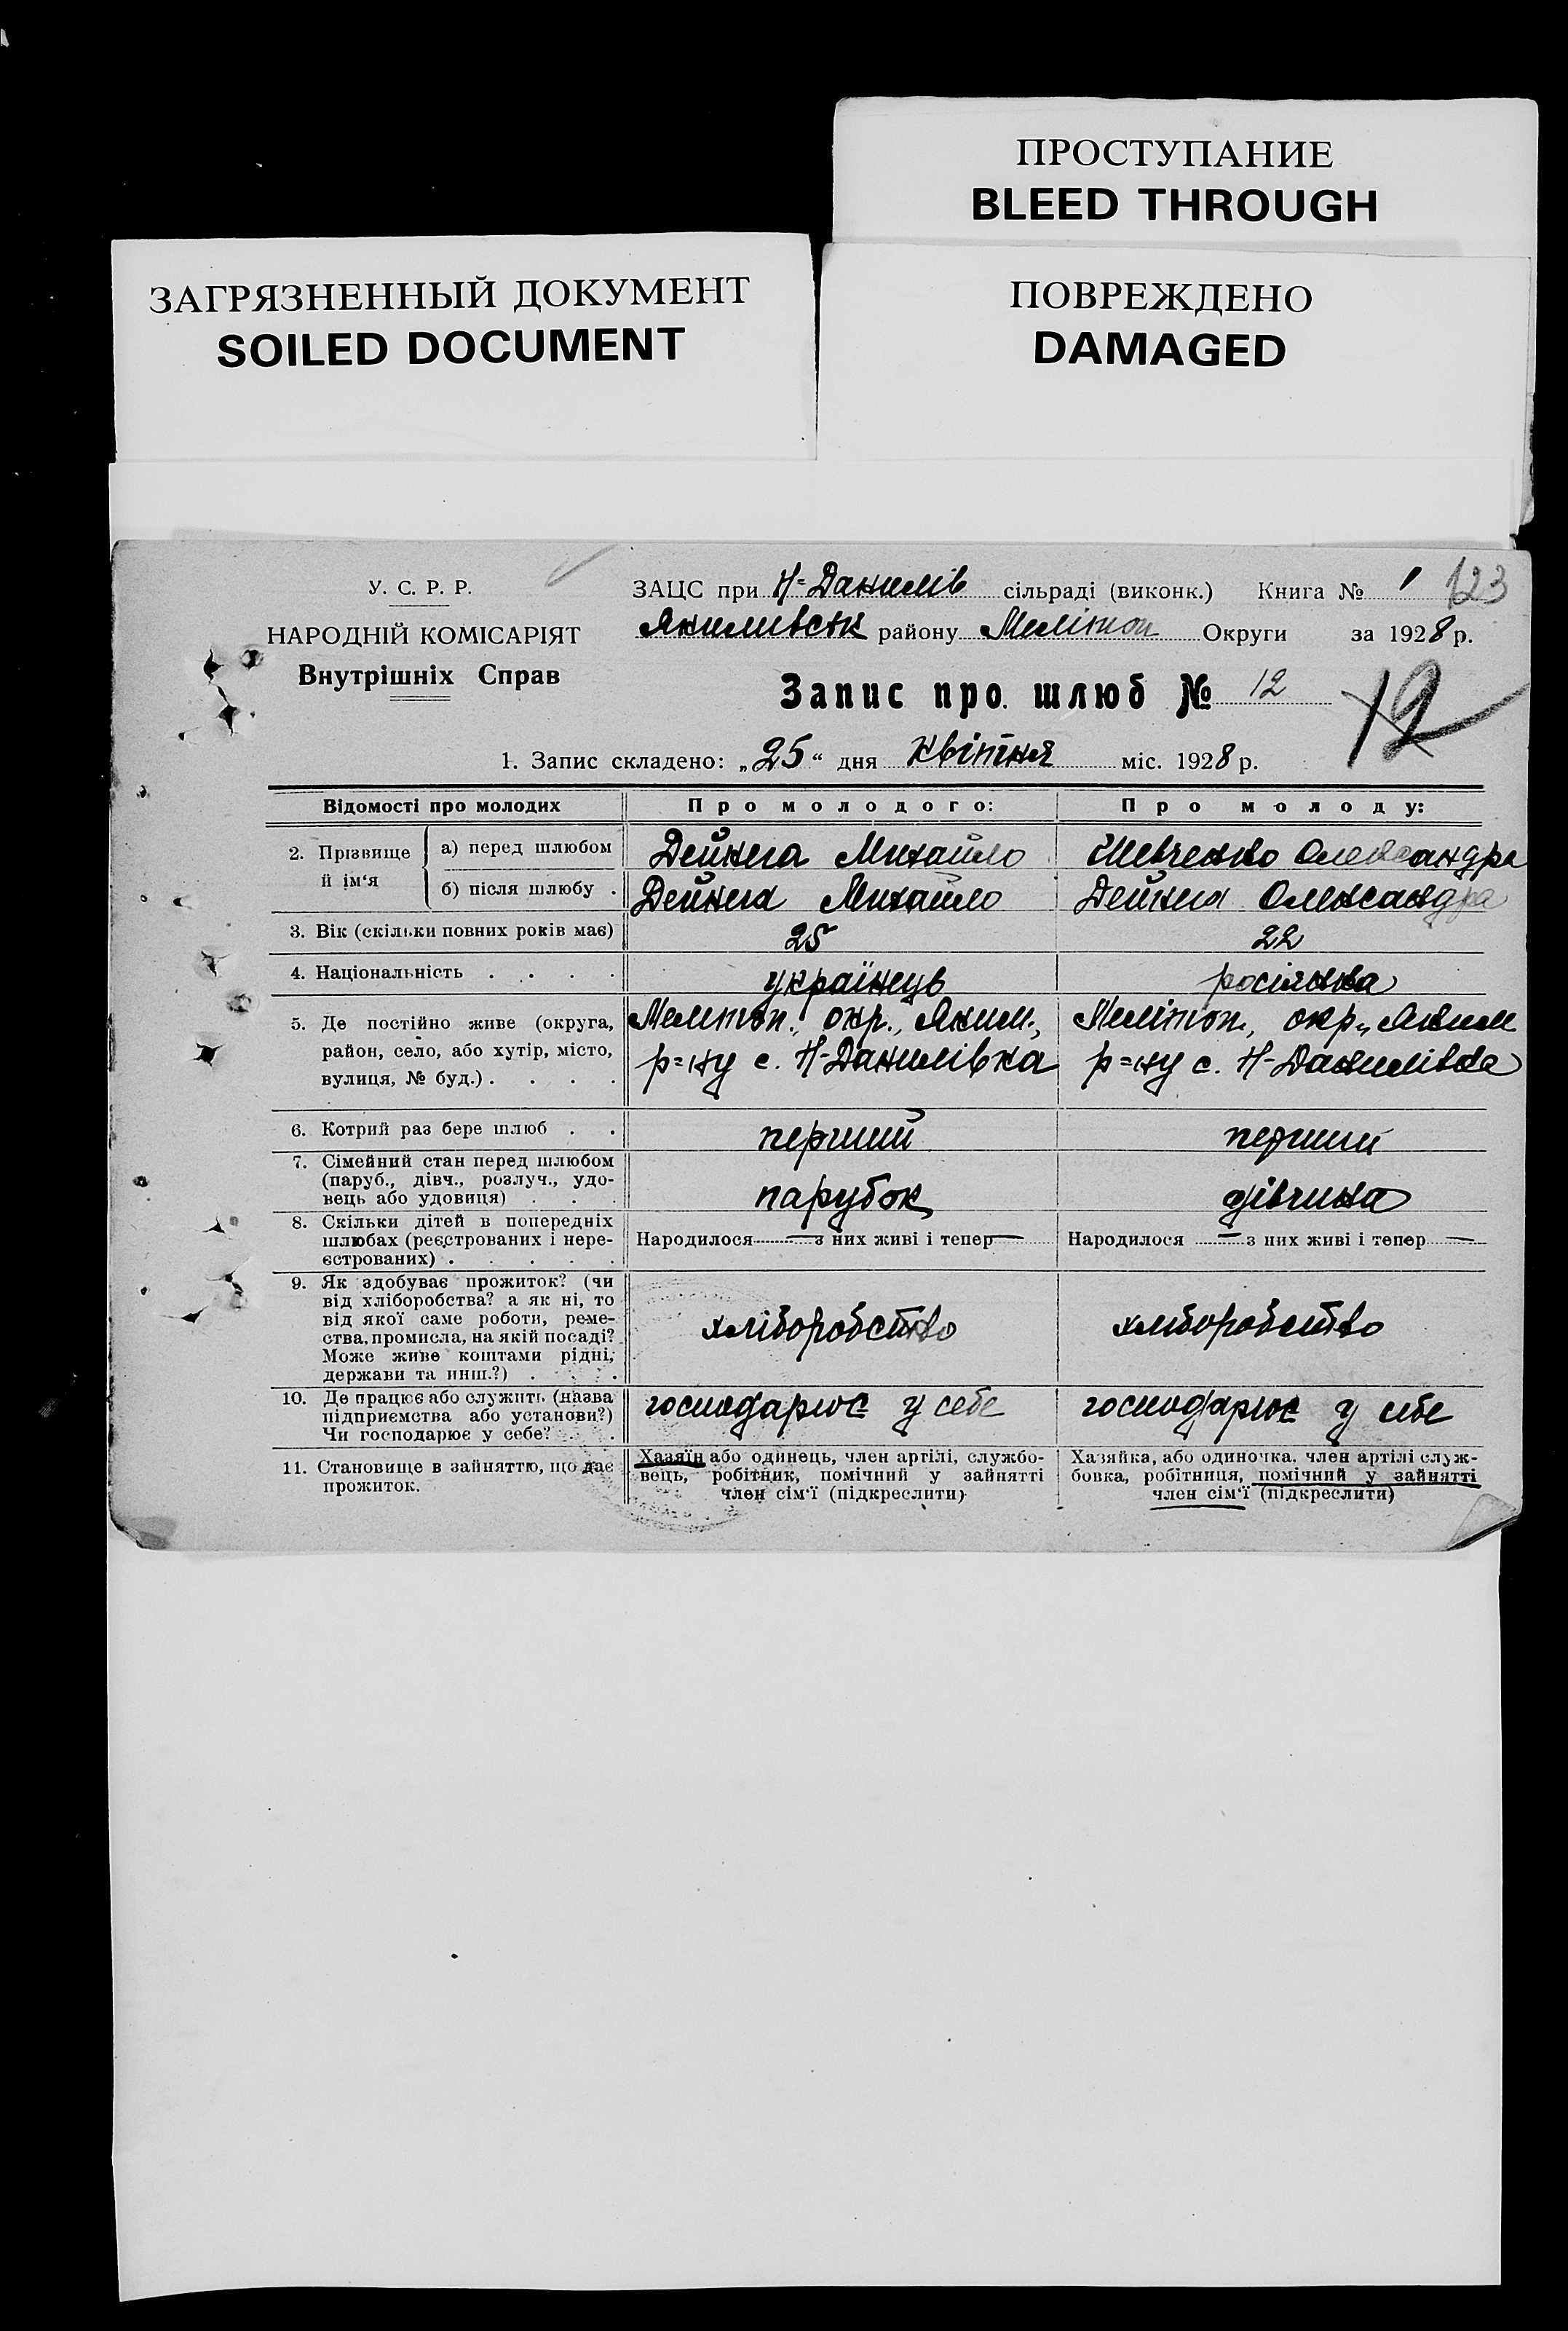 ПРОСТУПАНИЕ
BLEED THROUGH
ЗАГРЯЗНЕННЫЙ ДОКУМЕНТ
SOILED DOCUMENT
ПОВРЕЖДЕНО
DAMAGED
У. С. Р. Р.
НАРОДНІЙ КОМІСАРІЯТ
Внутрішніх Справ
ЗАЦС при Н-Данилів сільраді (виконк.) Книга № 1 123
Якимівськ району Мелітоп Округи за 1928 р.
Запис про шлюб № 12
12
1. Запис складено: „25“ дня квітня міс. 1928 р.
Відомості про молодих Про молодого: Про молоду:
2. Прізвище й ім‘я
а) перед шлюбом Дейнега Михайло Шевченко Олександра
б) після шлюбу . Дейнега Михайло Дейнега Олександра
3. Вік (скільки повних років має) 25 22
4. Національність . . . . українець росіянка
5. Де постійно живе (округа,
район, село, або хутір, місто,
вулиця, № буд.) . . . .
Мелітоп. окр., Яким.,
р=ну с. Н-Данилівка
Мелітоп., окр., Яким
р=ну с. Н-Данилівка
6. Котрий раз бере шлюб . . перший перший
7. Сімейний стан перед шлюбом
(паруб., дівч., розлуч., удо-
вець або удовиця) . . .
парубок дівчина
8. Скільки дітей в попередніх
шлюбах (реєстрованих і нере-
єстрованих) . . . . .
Народилося — з них живі і тепер —
Народилося — з них живі і тепер —
9. Як здобуває прожиток? (чи
від хліборобства? а як ні, то
від якої саме роботи, реме-
ства, промисла, на якій посаді?
Може живе коштами рідні,
держави та инш.?) . . . .
хліборобство хліборобство
10. Де працює або служить (назва
підприємства або установи?)
Чи господарює у себе? . .
господарює у себе господарює у себе
11. Становище в зайняттю, що дає
прожиток.
Хазяїн або одинець, член артілі, службо-
вець, робітник, помічний у зайнятті
член сім‘ї (підкреслити)
Хазяйка, або одиночка, член артілі служ-
бовка, робітниця, помічний у зайнятті
член сім‘ї (підкреслити)